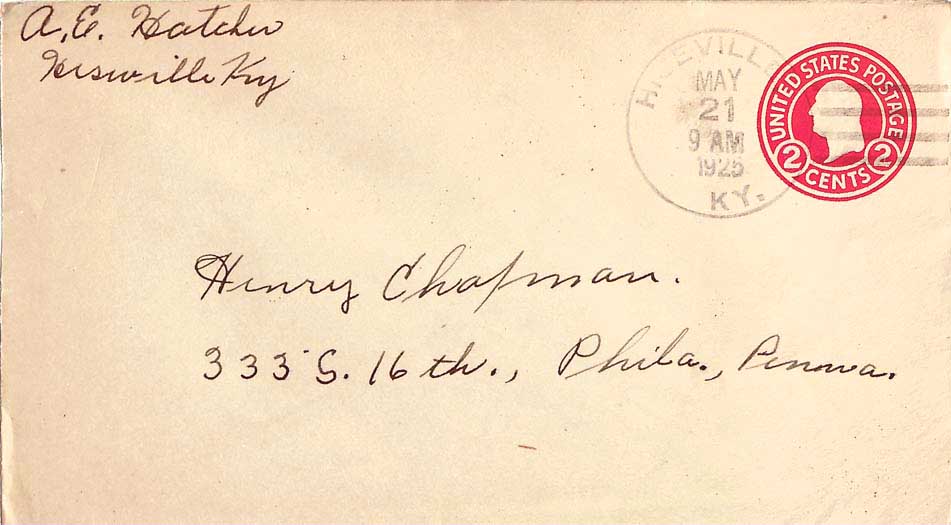 A. E. Hatcher
Hiseville Ky
HISEVILLE
MAY
21
9 AM
1925
KY.
UNITED STATES POSTAGE
2 CENTS 2
Henry Chapman.
333 S. 16th., Phila., Penna.